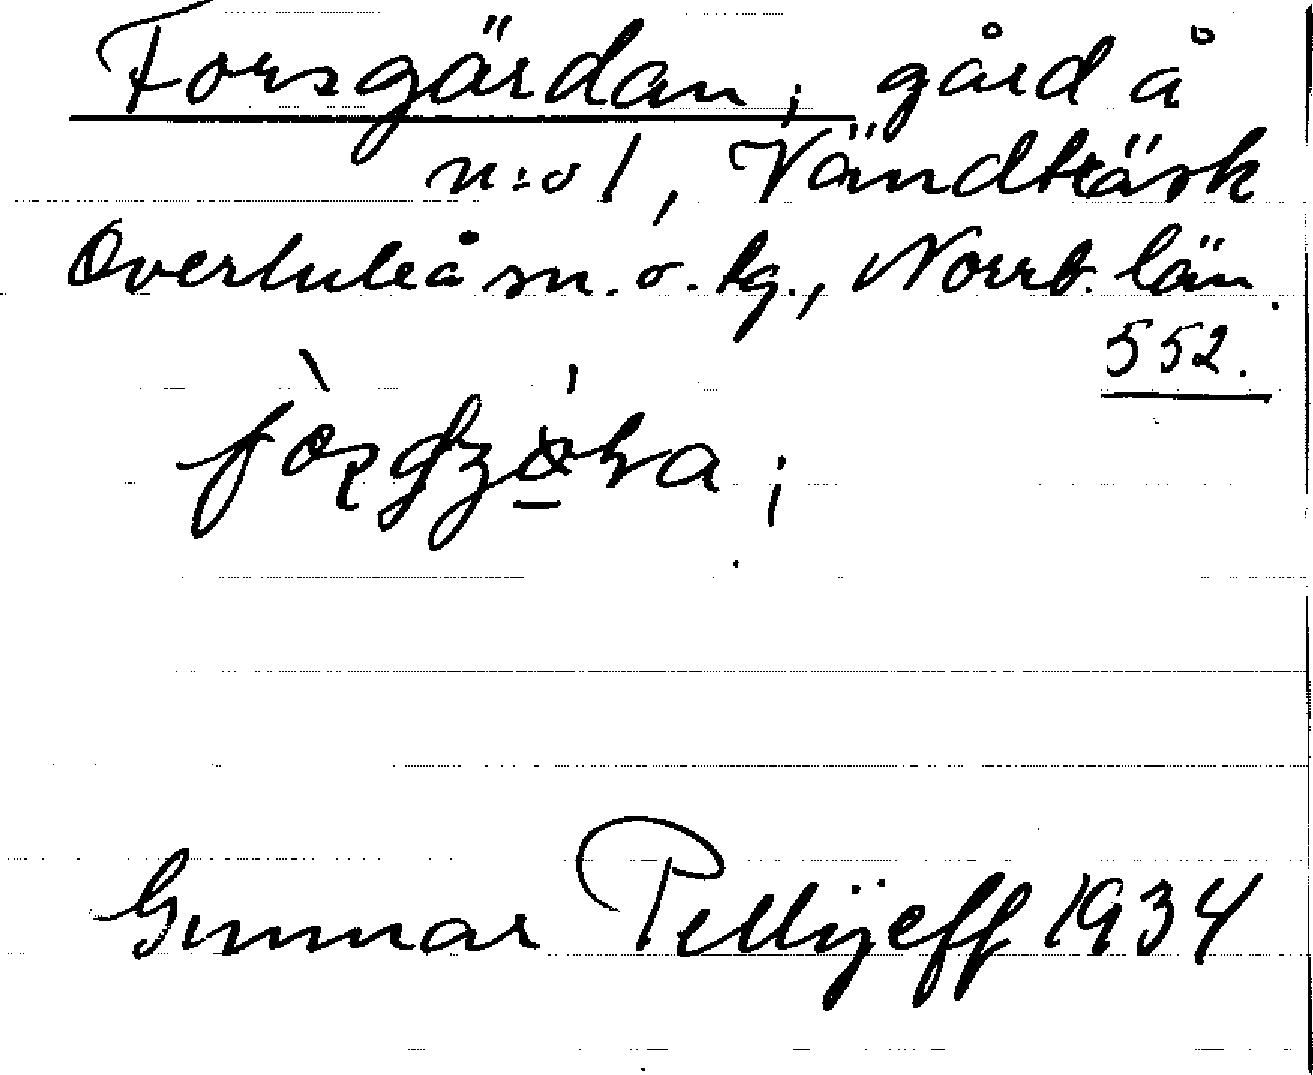 Forsgärdan; gård å
n:o 1, Vändträsk
Överluleå sn. o. tg., Norrb. län.
552.
Gunnar Pellijeff 1934